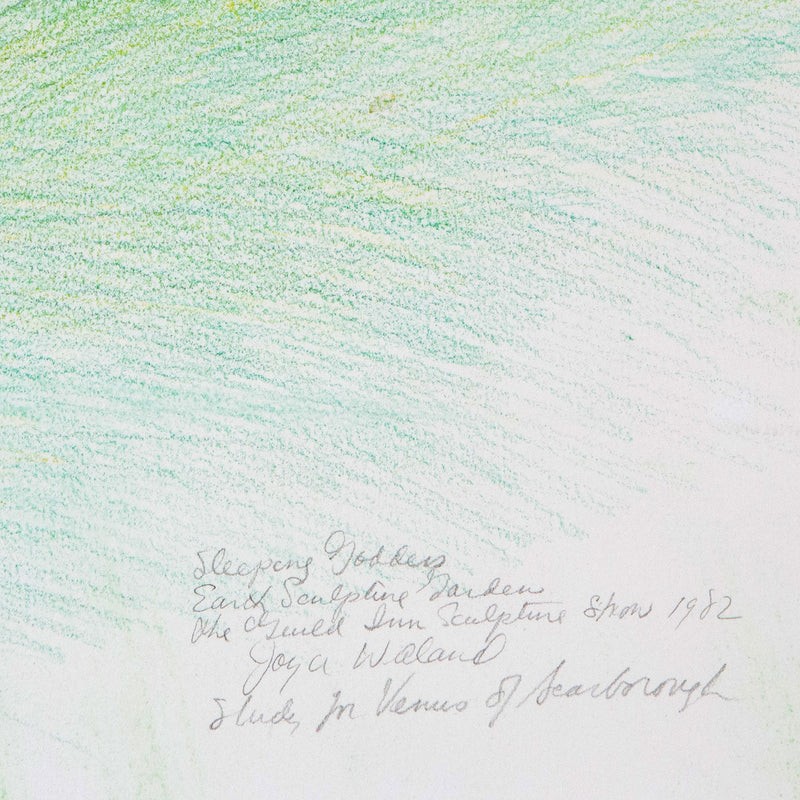 Sleeping Goddess
Earth Sculpture Garden
The Guild Inn Sculpture Show 1982
Joya Waland
Study for Venus of Scarborough